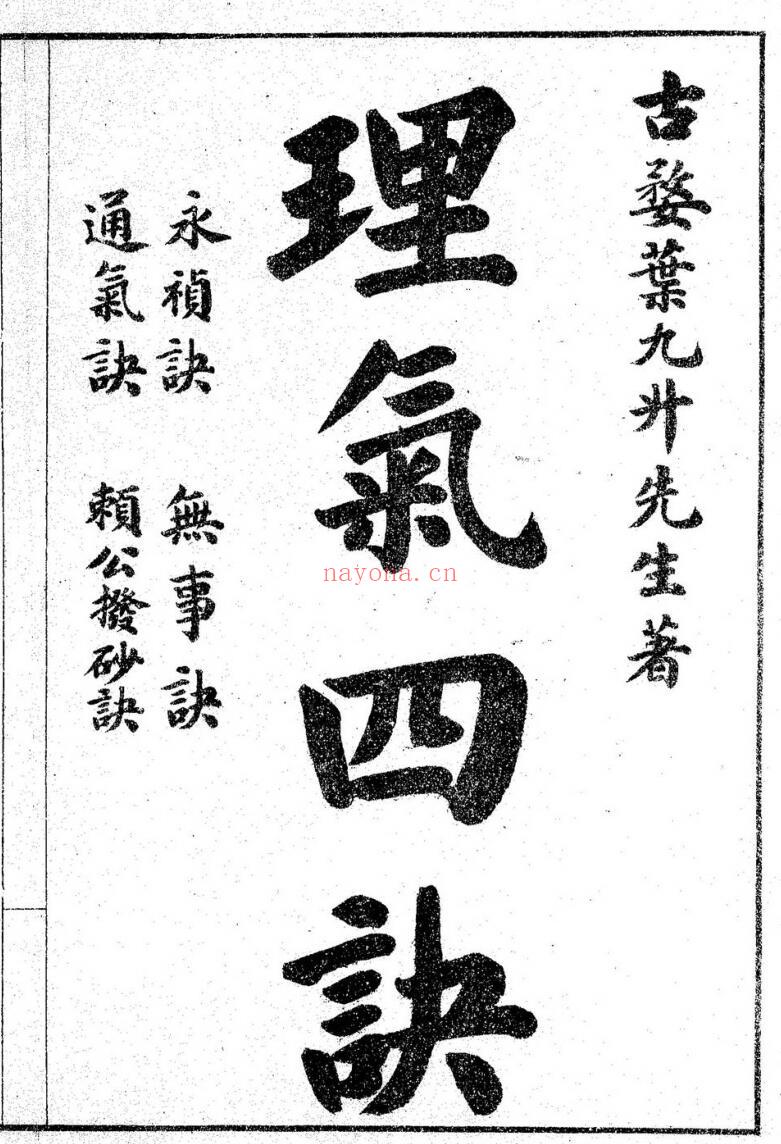 古婺葉九升先生著
理氣四訣
永禎訣 無事訣
通氣訣 賴公撥砂訣
nayona.cn